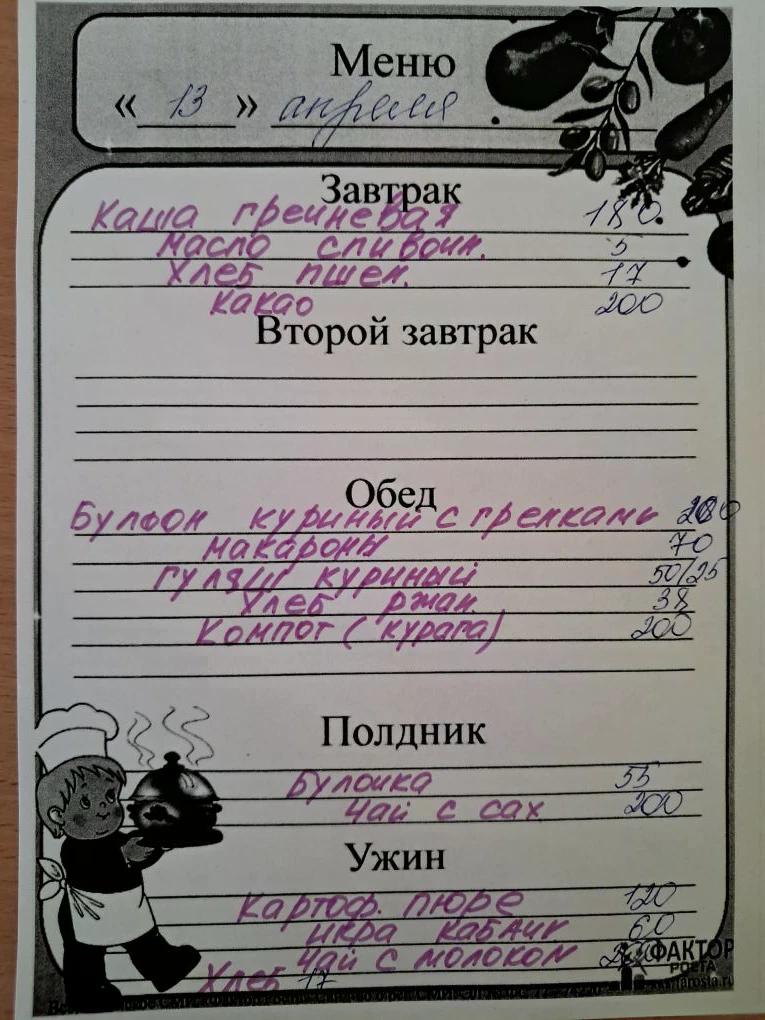 Меню
« 13 » апреля
Завтрак
Каша гречневая 180
масло сливочн. 5
хлеб пшен. 17
какао 200
Второй завтрак
Обед
Бульон куриный с гренками
макароны 70
гуляш куриный 50/25
Хлеб ржан. 38
Компот (курага) 200
Полдник
Булочка 55
Чай с сах 200
Ужин
Картоф. пюре 120
икра кабачк 60
Чай с молоком
Хлеб 17
ФАКТОР
РОСТА